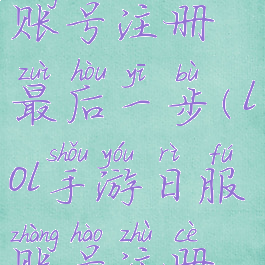 账号注册
zuì hòu yī bù
最后一步(l
shǒu yóu rì fú
ol手游日服
zhàng hào zhù cè
账号注册